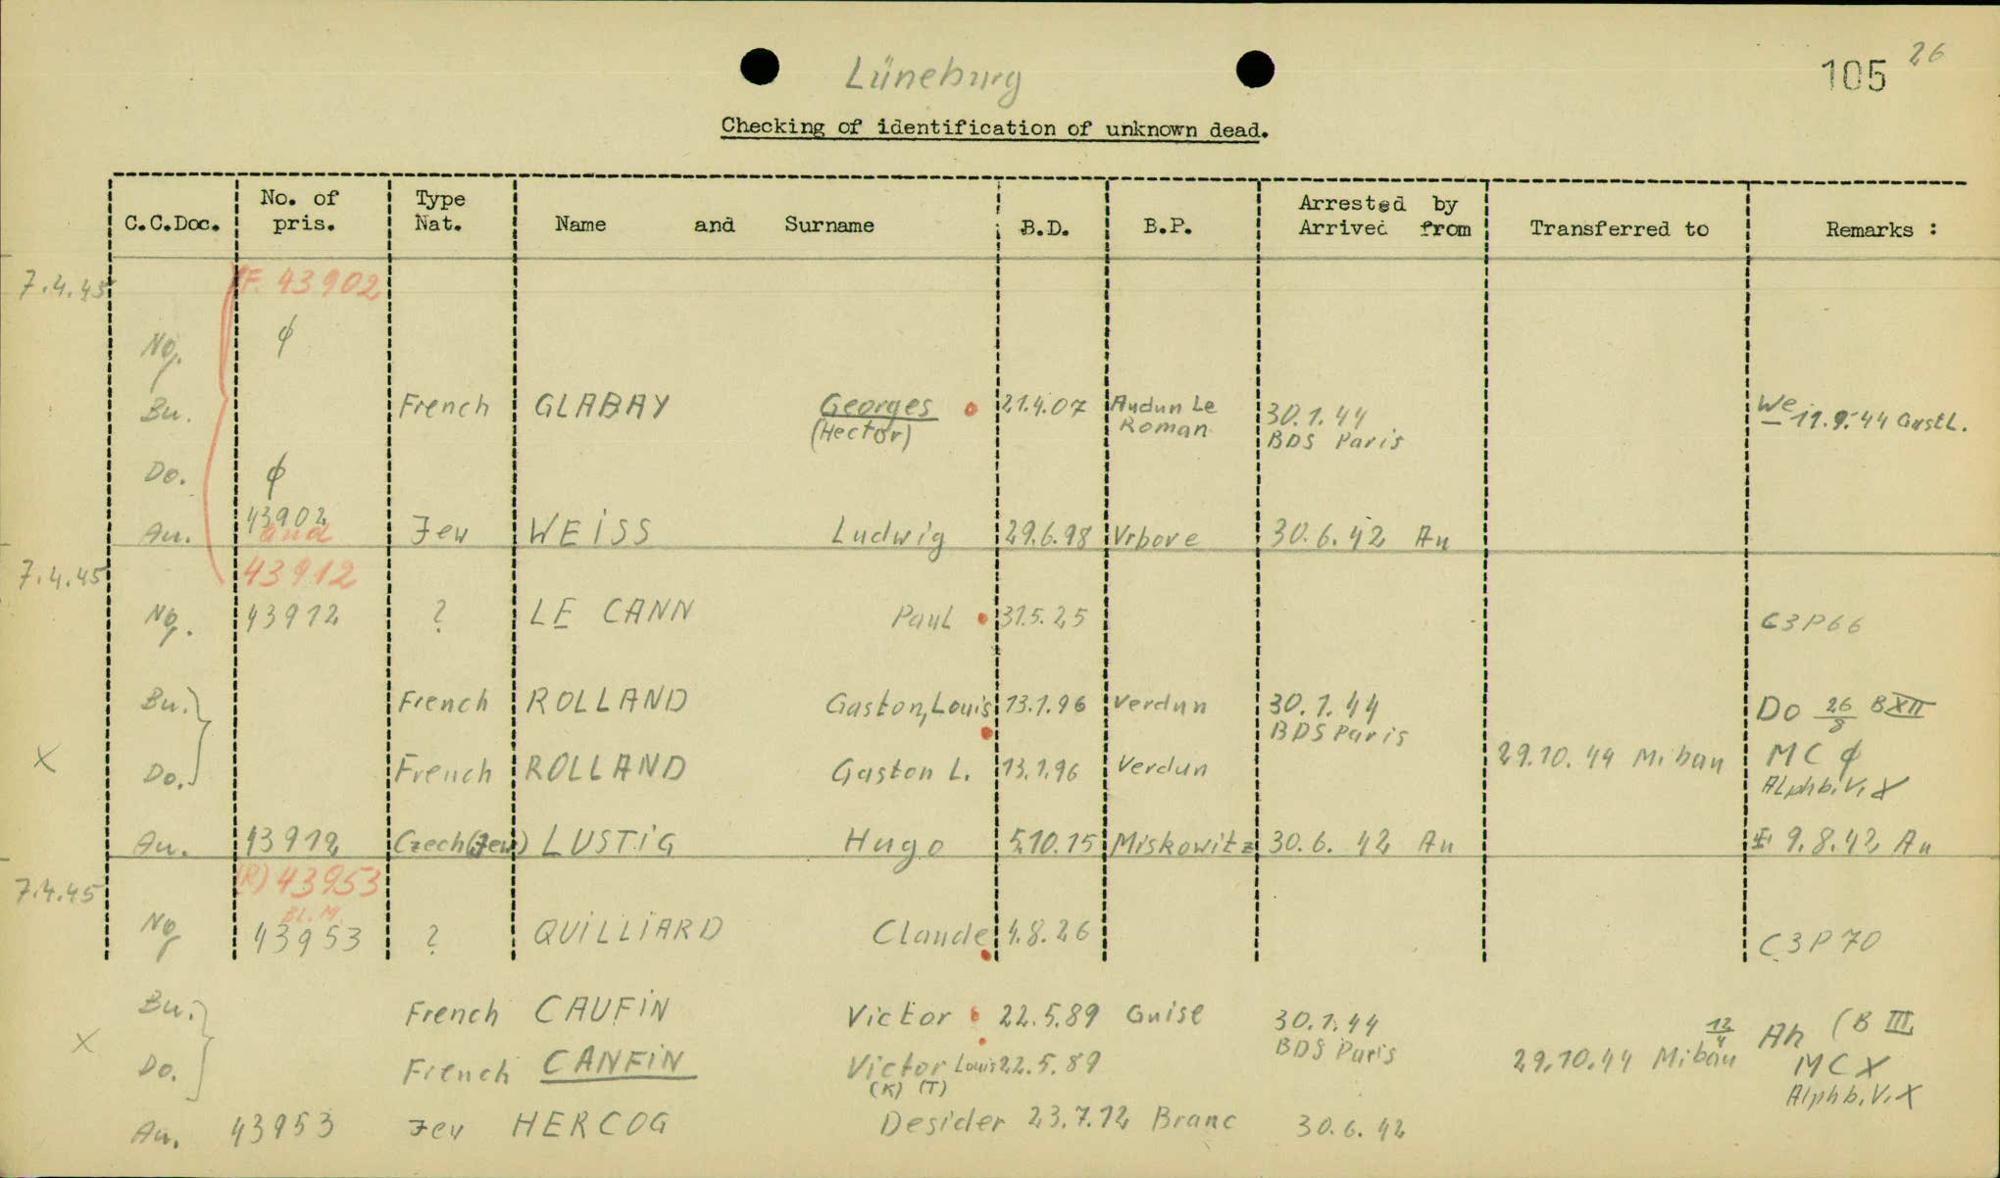 Lüneburg
105 26
Checking of identification of unknown dead.
C.C.Doc. No. of pris. Type Nat. Name and Surname B.D. B.P. Arrested by Arrived from Transferred to Remarks :
7.4.45 F. 43902
Ng. ϕ
Bu. French GLABAY Georges (Hector) 21.4.07 Audun Le Roman 30.1.44 BDS Paris We 11.9.44 Gustl.
Do. ϕ
Au. 43902 Jew WEISS Ludwig 29.6.98 Vrbove 30.6.42 Au
and
7.4.45 43912
Ng. 43912 ? LE CANN Paul 31.5.25 C3P66
Bu. French ROLLAND Gaston, Louis 13.1.96 Verdun 30.1.44 BDS Paris Do 26/8 B XII
X Do. French ROLLAND Gaston L. 13.1.96 Verdun 29.10.44 Mibau MC ϕ
Alphb. V. X
Au. 43912 Czech (Jew) LUSTIG Hugo 5.10.15 Miskowitz 30.6.42 Au 9.8.42 Au
7.4.45 (R) 43953
BL.M.
Ng 43953 ? QUILLIARD Claude 4.8.26 C3P70
Bu. French CAUFIN Victor 22.5.89 Guise 30.1.44 BDS Paris 12/4 Ah (B III
X Do. French CANFIN Victor Louis 22.5.89 29.10.44 Mibau MC X
(K) (T) Alphb. V. X
Au. 43953 Jew HERCOG Desider 23.7.12 Branc 30.6.42